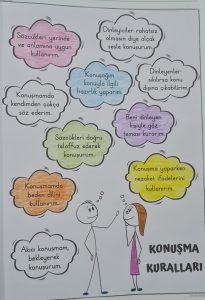 Sözcükleri yerinde
ve anlamına uygun
kullanırım.
Dinleyiciler rahatsız
olmasın diye alçak
sesle konuşurum.
Konuşacağım
konuyla ilgili
hazırlık yaparım.
Dinleyenler
sıkılırsa konu
dışına çıkabilirim.
Konuşmamda
kendimden çokça
söz ederim.
Beni dinleyen
kişiyle göz
teması kurarım.
Sözcükleri doğru
telaffuz ederek
konuşurum.
Konuşma yaparken
nezaket ifadelerini
kullanırım.
Konuşmamda
beden dilini
kullanırım.
Akıcı konuşmam,
bekleyerek
konuşurum.
KONUŞMA
KURALLARI